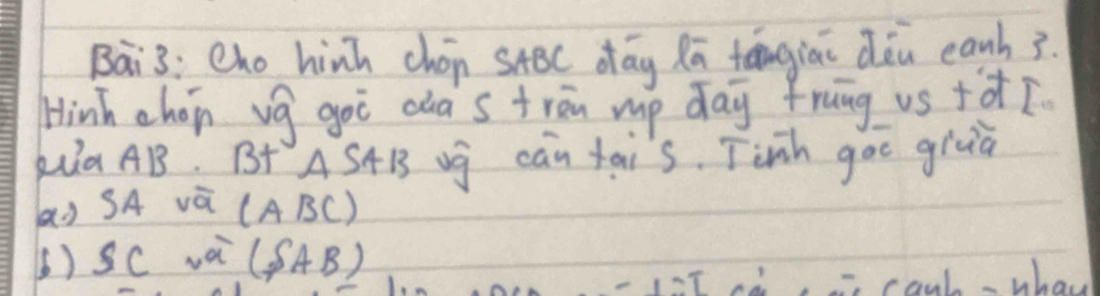 Bài 3: Cho hình chóp SABC đáy là tam giác đều cạnh 3.
Hình chóp vg góc của S trên mp đáy trùng vs tđ I
của AB. Bt Δ SAB vg cân tại S. Tính góc giữa
a) SA và (ABC)
b) SC và (SAB)